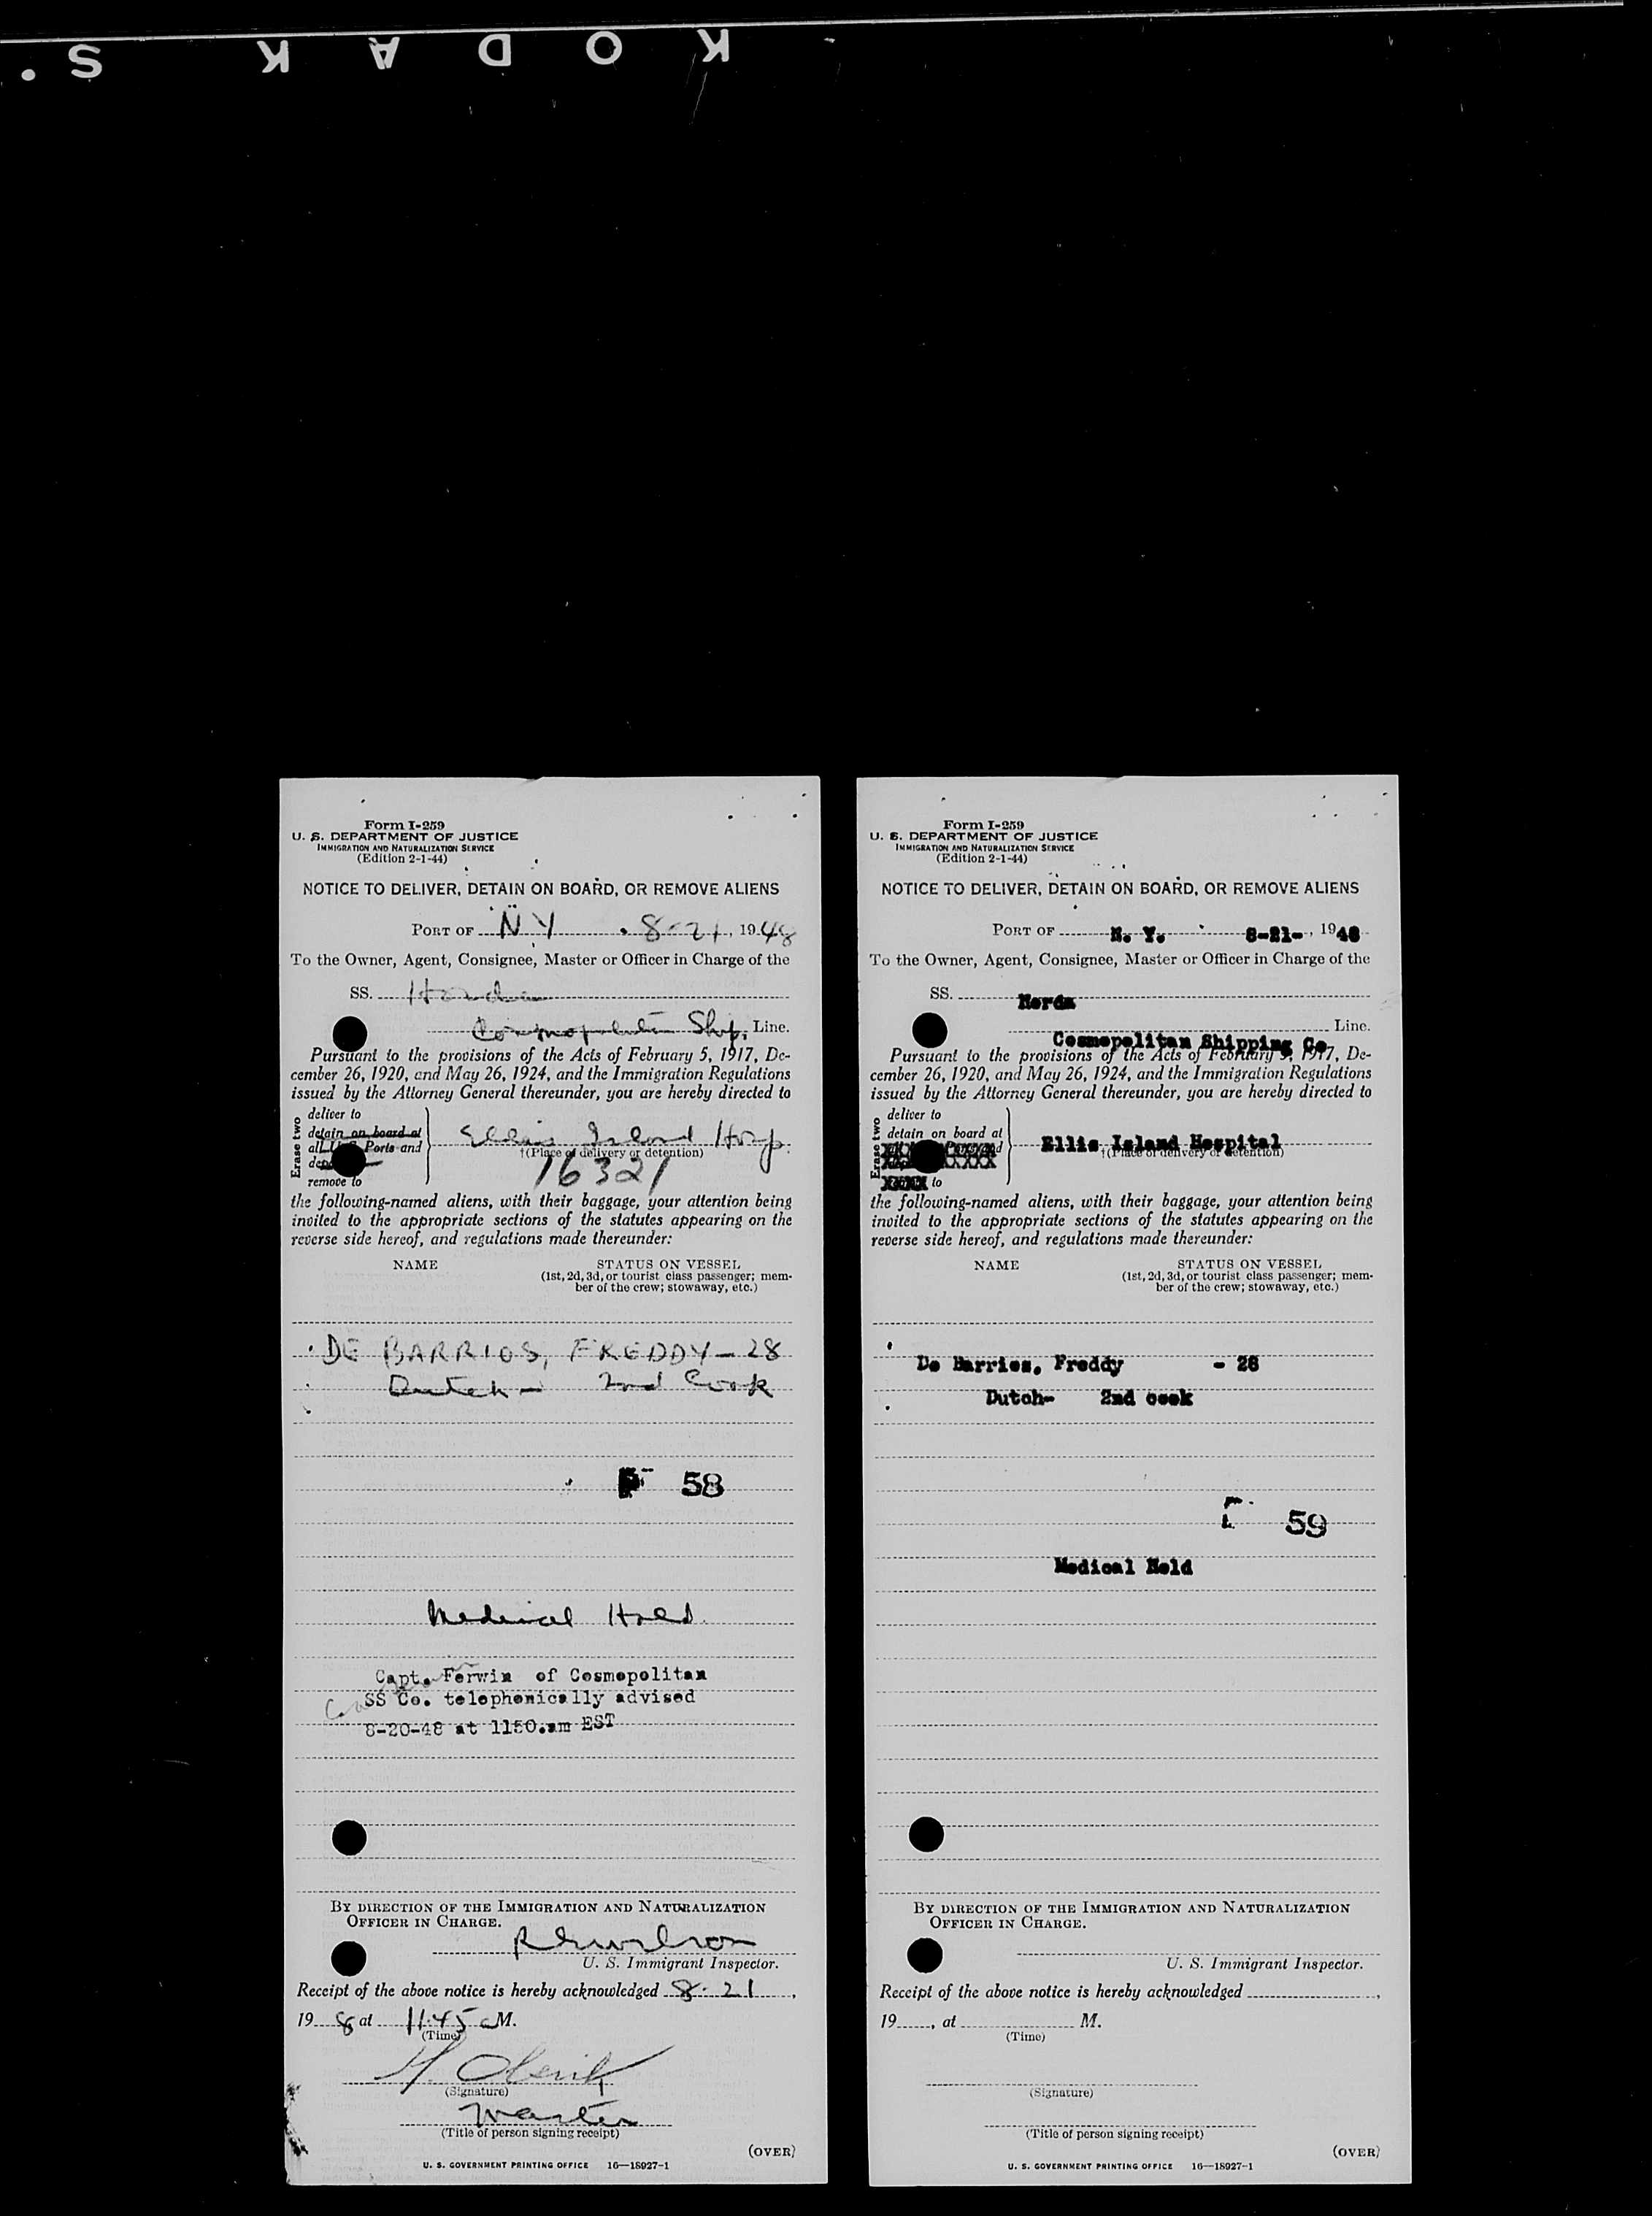 KODAK S.
Form I-259
U. S. DEPARTMENT OF JUSTICE
IMMIGRATION AND NATURALIZATION SERVICE
(Edition 2-1-44)
NOTICE TO DELIVER, DETAIN ON BOARD, OR REMOVE ALIENS
PORT OF NY 8-21, 1948
To the Owner, Agent, Consignee, Master or Officer in Charge of the
SS.
Cosmopolitan Ship. Line.
Pursuant to the provisions of the Acts of February 5, 1917, De-
cember 26, 1920, and May 26, 1924, and the Immigration Regulations
issued by the Attorney General thereunder, you are hereby directed to
Erase two
deliver to
detain on board at
all U. S. Ports and
remove to
Ellis Island Hosp.
†(Place of delivery or detention)
16321
the following-named aliens, with their baggage, your attention being
invited to the appropriate sections of the statutes appearing on the
reverse side hereof, and regulations made thereunder:
NAME STATUS ON VESSEL
(1st, 2d, 3d, or tourist class passenger; mem-
ber of the crew; stowaway, etc.)
DE BARRIOS, FREDDY - 28
Dutch - 2nd Cook
58
Medical Hold
Capt. Ferwin of Cosmopolitan
SS Co. telephonically advised
8-20-48 at 1150.am EST
BY DIRECTION OF THE IMMIGRATION AND NATURALIZATION
OFFICER IN CHARGE.
U. S. Immigrant Inspector.
Receipt of the above notice is hereby acknowledged 8-21,
19 8 at 11:45 a M.
(Time)
(Signature)
Master
(Title of person signing receipt)
(OVER)
U. S. GOVERNMENT PRINTING OFFICE 16—18927-1
Form I-259
U. S. DEPARTMENT OF JUSTICE
IMMIGRATION AND NATURALIZATION SERVICE
(Edition 2-1-44)
NOTICE TO DELIVER, DETAIN ON BOARD, OR REMOVE ALIENS
PORT OF N. Y. 8-21-, 1948
To the Owner, Agent, Consignee, Master or Officer in Charge of the
SS.
Line.
Cosmopolitan Shipping Co
Pursuant to the provisions of the Acts of February 5, 1917, De-
cember 26, 1920, and May 26, 1924, and the Immigration Regulations
issued by the Attorney General thereunder, you are hereby directed to
Erase two
deliver to
detain on board at
to
Ellis Island Hospital
†(Place of delivery or detention)
the following-named aliens, with their baggage, your attention being
invited to the appropriate sections of the statutes appearing on the
reverse side hereof, and regulations made thereunder:
NAME STATUS ON VESSEL
(1st, 2d, 3d, or tourist class passenger; mem-
ber of the crew; stowaway, etc.)
De Barrios, Freddy - 28
Dutch- 2nd cook
59
Medical Hold
BY DIRECTION OF THE IMMIGRATION AND NATURALIZATION
OFFICER IN CHARGE.
U. S. Immigrant Inspector.
Receipt of the above notice is hereby acknowledged ,
19 , at M.
(Time)
(Signature)
(Title of person signing receipt)
(OVER)
U. S. GOVERNMENT PRINTING OFFICE 16—18927-1